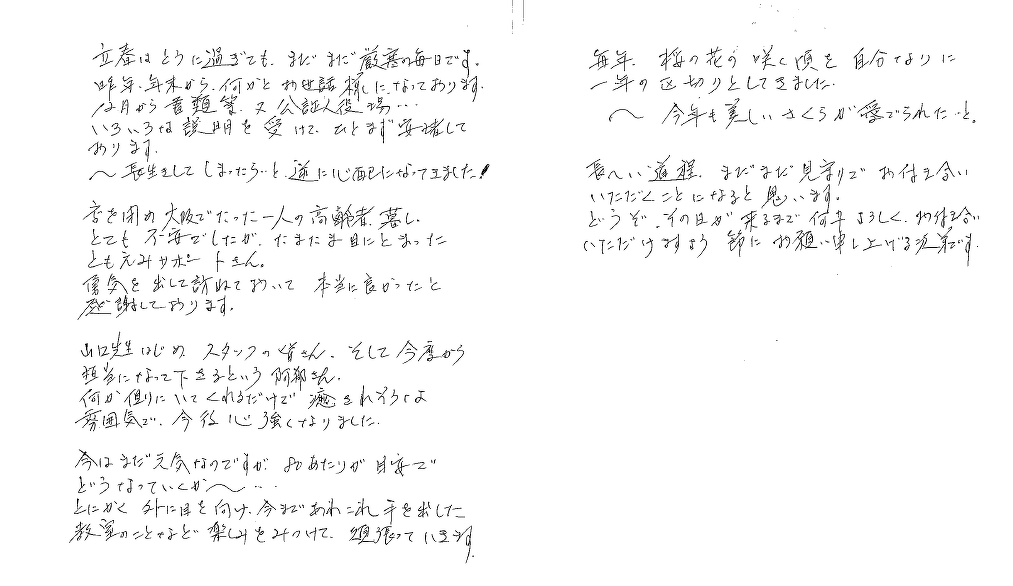 立春はとうに過ぎても、まだまだ厳寒の毎日です。
昨年、年末から、何かとお世話様になっております。
12月から書類等、又公証人役場…
いろいろな説明を受けて、ひとまず安堵して
おります。
〜長生きをしてしまったら…と、遂に心配になってきました!
店を閉め大阪でたった一人の高齢者暮し。
とても不安でしたが、たまたま目にとまった
ともえみサポートさん。
勇気を出して訪ねておいて本当に良かったと
感謝しております。
山口先生はじめ、スタッフの皆さん、そして今度から
担当になって下さるという阿部さん。
何か側にいてくれるだけで癒されそうな
雰囲気で、今後心強くなりました。
今はまだ元気なのですが、80あたりが目安で
どうなっていくか〜…
とにかく外に目を向け、今まであれこれ手を出した
教室のことなど楽しみをみつけて、頑張っていきます。
毎年、桜の花の咲く頃を自分なりに
一年の区切りとしてきました。
〜今年も美しいさくらが愛でられた…と。
長〜い道程、まだまだ見守りでお付き合い
いただくことになると思います。
どうぞ、その日が来るまで何卒よろしく、お付き合い
いただけますよう 節にお願い申し上げる次第です。